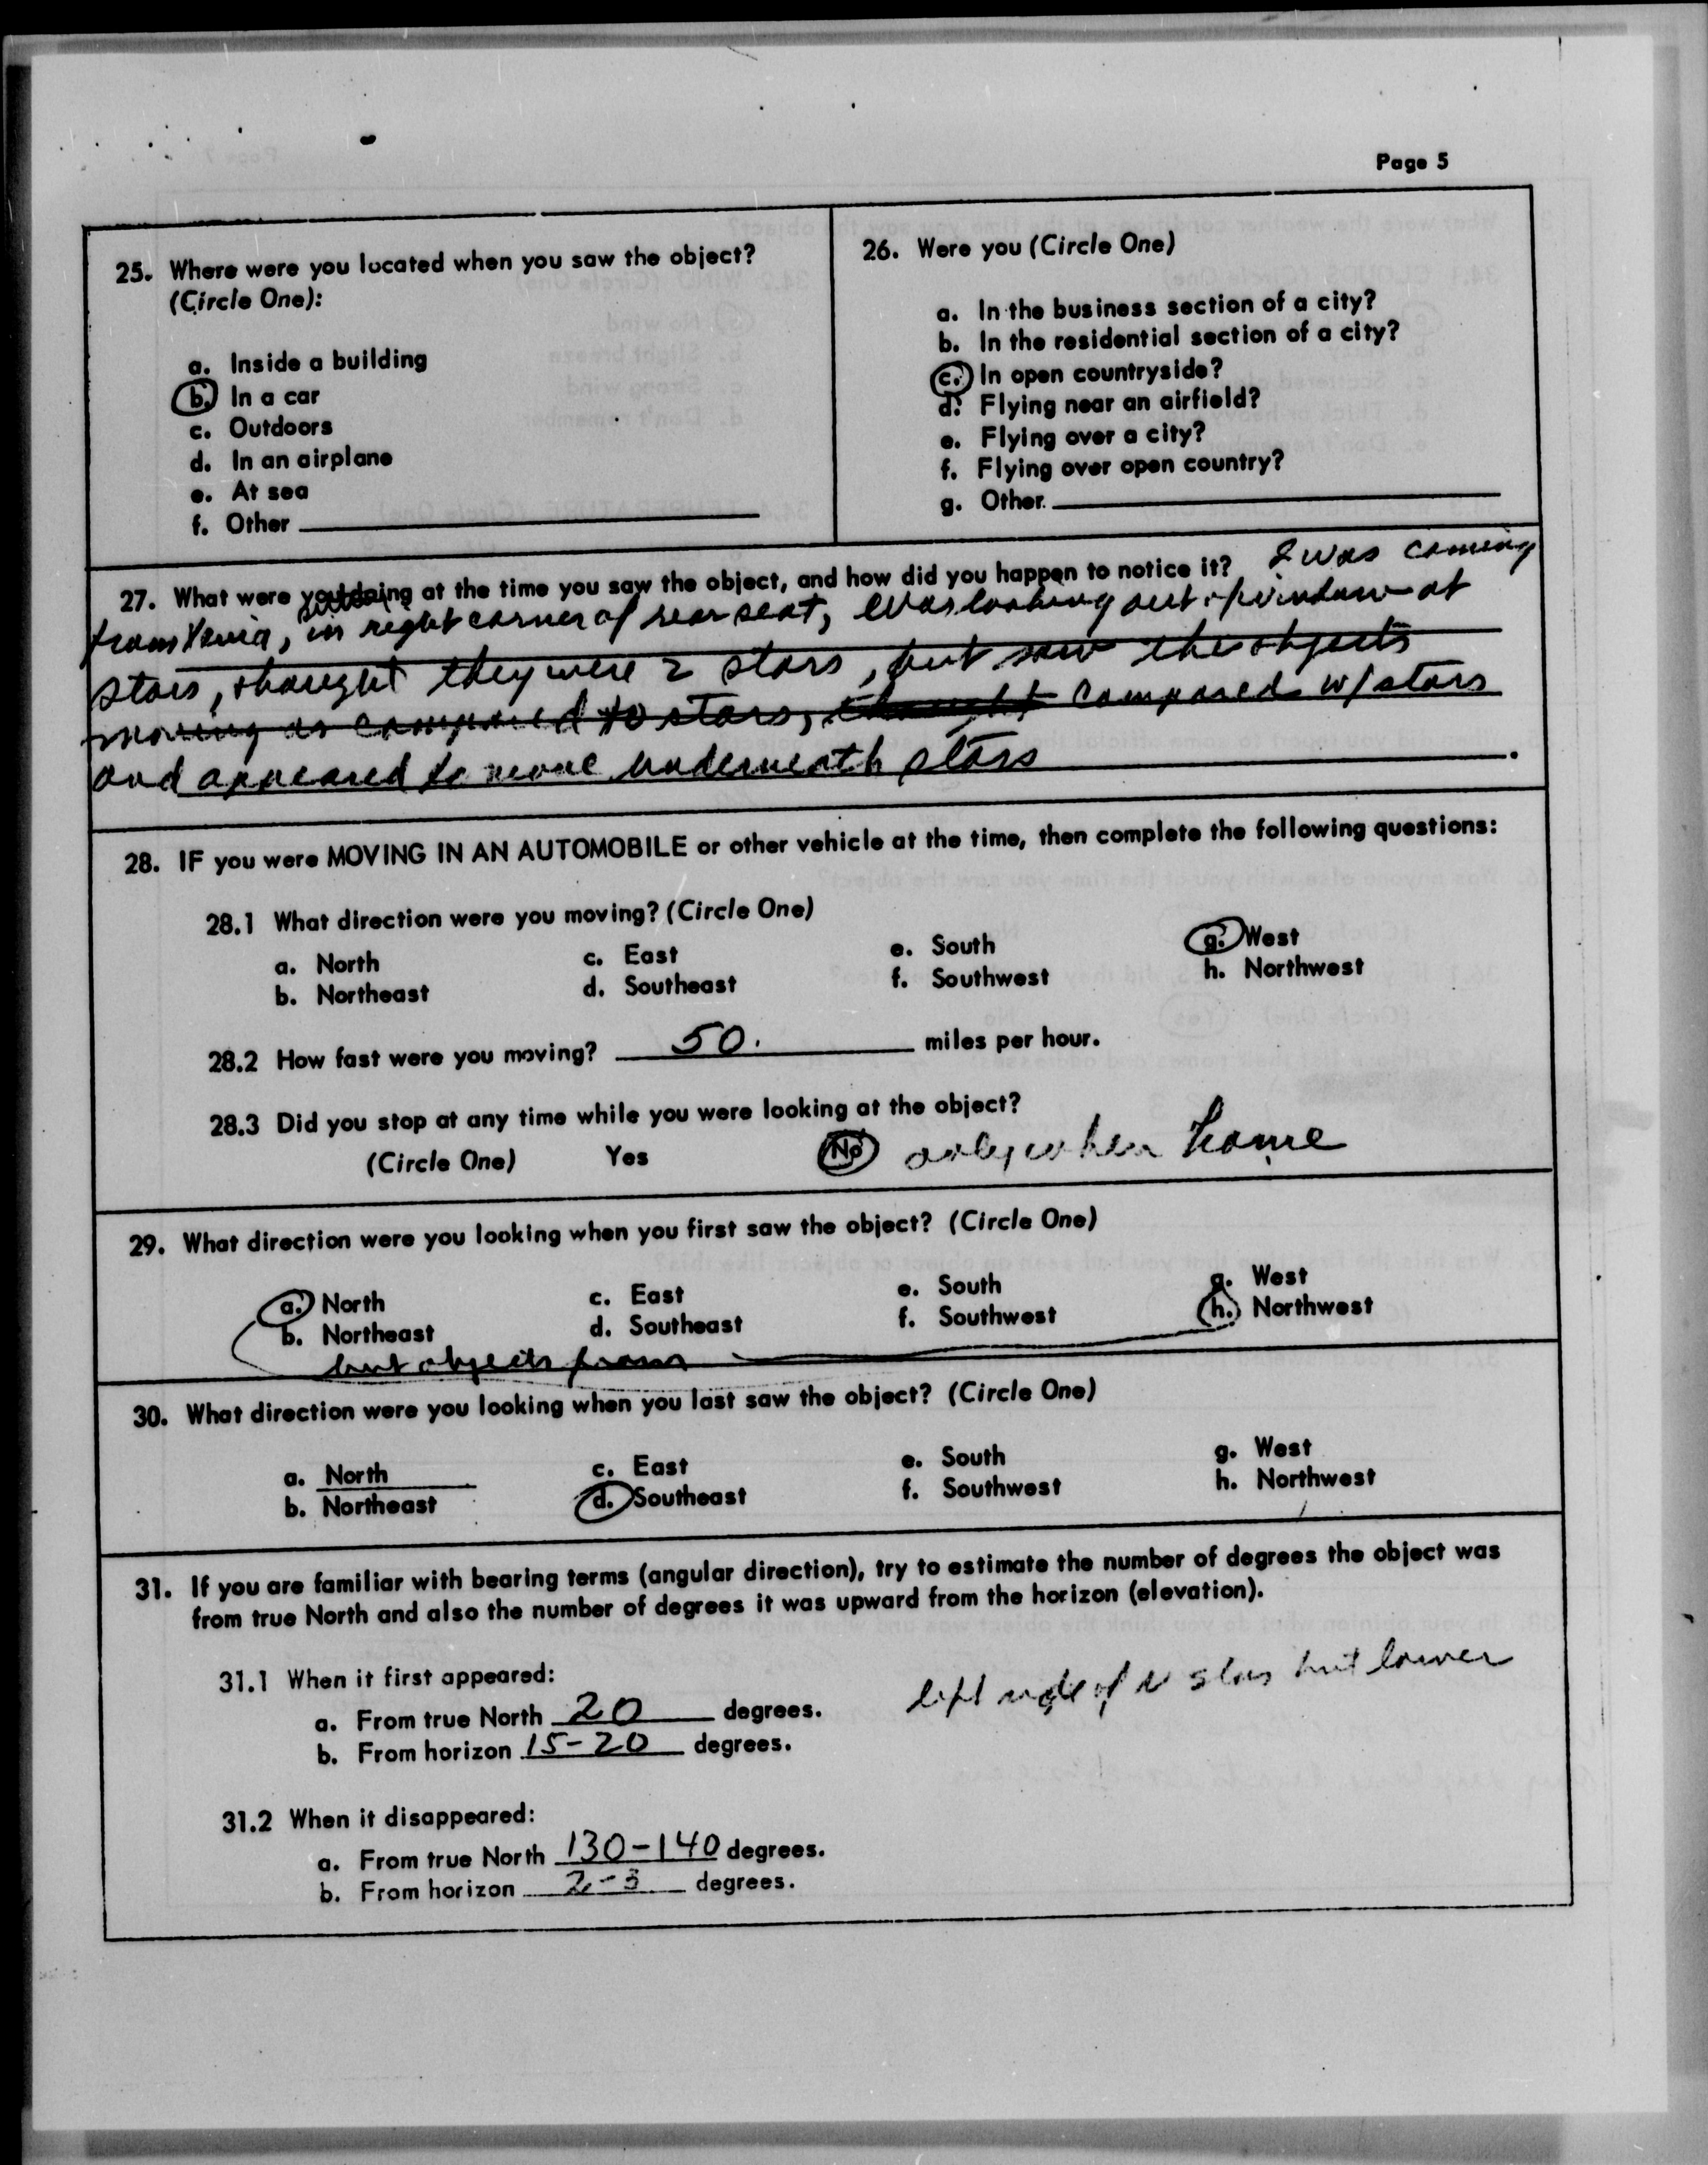 Page 5
25. Where were you located when you saw the object?
(Circle One):
a. Inside a building
b. In a car
c. Outdoors
d. In an airplane
e. At sea
f. Other
26. Were you (Circle One)
a. In the business section of a city?
b. In the residential section of a city?
c. In open countryside?
d. Flying near an airfield?
e. Flying over a city?
f. Flying over open country?
g. Other
27. What were you doing at the time you saw the object, and how did you happen to notice it? I was coming
from Xenia, in right corner of rear seat, was looking out of window at
stars, thought they were 2 stars, but saw the objects
moving as compared to stars, thought compared w/ stars
and appeared to move underneath stars
28. IF you were MOVING IN AN AUTOMOBILE or other vehicle at the time, then complete the following questions:
28.1 What direction were you moving? (Circle One)
a. North c. East e. South g. West
b. Northeast d. Southeast f. Southwest h. Northwest
28.2 How fast were you moving? 50. miles per hour.
28.3 Did you stop at any time while you were looking at the object?
(Circle One) Yes No only when home
29. What direction were you looking when you first saw the object? (Circle One)
a. North c. East e. South g. West
b. Northeast d. Southeast f. Southwest h. Northwest
but objects from
30. What direction were you looking when you last saw the object? (Circle One)
a. North c. East e. South g. West
b. Northeast d. Southeast f. Southwest h. Northwest
31. If you are familiar with bearing terms (angular direction), try to estimate the number of degrees the object was
from true North and also the number of degrees it was upward from the horizon (elevation).
31.1 When it first appeared:
left side of N star but lower
a. From true North 20 degrees.
b. From horizon 15-20 degrees.
31.2 When it disappeared:
a. From true North 130-140 degrees.
b. From horizon 2-3 degrees.